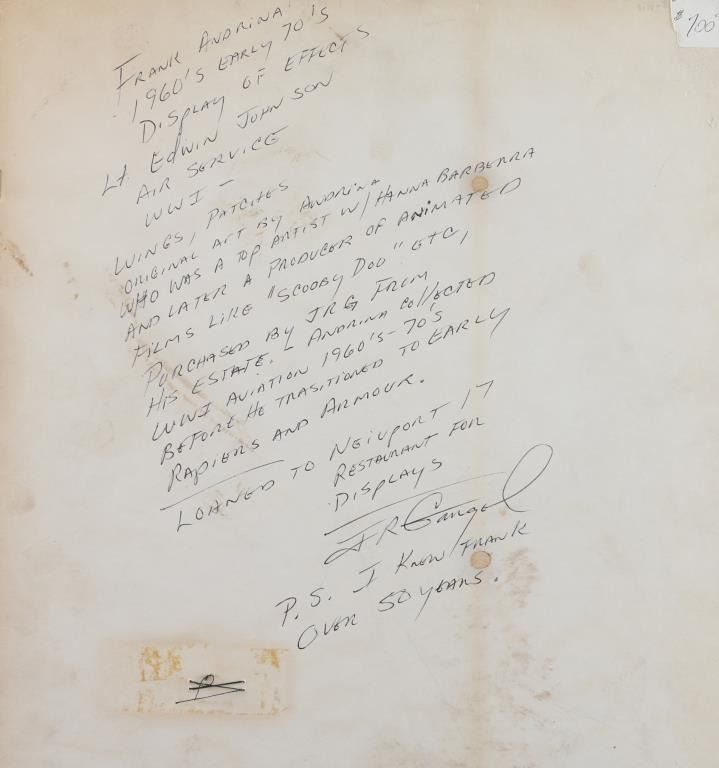 $700
FRANK ANDRINA
1960'S EARLY 70'S
DISPLAY OF EFFECTS
Lt. EDWIN JOHNSON
AIR SERVICE
WWI -
WINGS, PATCHES
ORIGINAL ART BY ANDRINA
WHO WAS A TOP ARTIST W/ HANNA BARBERRA
AND LATER A PRODUCER OF ANIMATED
FILMS LIKE "SCOOBY DOO" ETC,
PURCHASED BY JRG FROM
HIS ESTATE. - ANDRINA COLLECTED
WWI AVIATION 1960'S - 70'S
BEFORE HE TRASITIONED TO EARLY
RAPIERS AND ARMOUR.
LOANED TO NEIUPORT 17
RESTAURANT FOR
DISPLAYS
JR Gangel
P.S. I KNEW FRANK
OVER 50 YEARS.